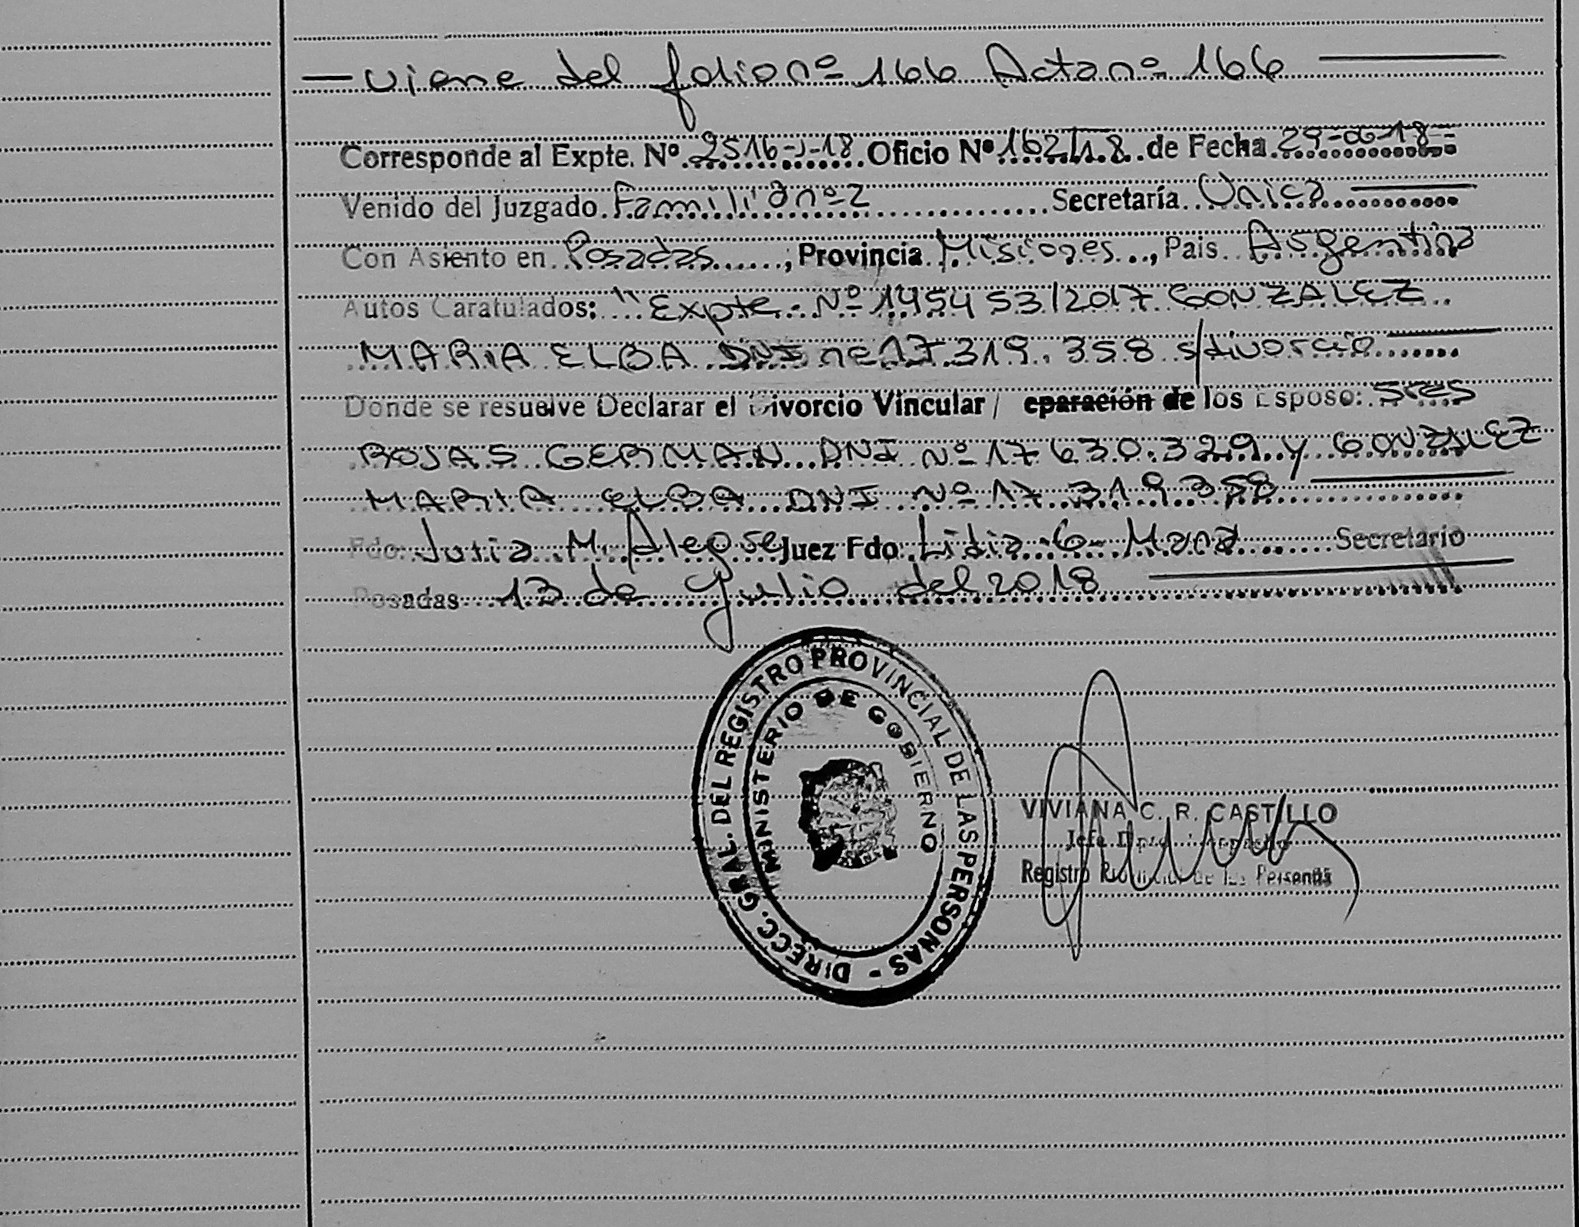 — viene del folio nº 166 Acta nº 166 —
Corresponde al Expte. Nº 2516-J-18 Oficio Nº 162/18 de Fecha 29-06-18-
Venido del Juzgado Familia nº 2 Secretaría Unica
Con Asiento en Posadas, Provincia Misiones, Pais Argentina
Autos Caratulados: "Expte. Nº 145453/2017 GONZALEZ
MARIA ELBA DNI nº 17.319.358 s/divorcio
Donde se resuelve Declarar el Divorcio Vincular / eparación de los Esposo: Sres
ROJAS GERMAN DNI Nº 17 630.329 y GONZALEZ
MARIA ELBA DNI Nº 17 319.358
Fdo: Julia M. Alegre Juez Fdo: Lidia G. Secretario
Posadas 13 de Julio del 2018
DIRECC. GRAL. DEL REGISTRO PROVINCIAL DE LAS PERSONAS -
MINISTERIO DE GOBIERNO
VIVIANA C. R. CASTILLO
Jefe Dpto.
Registro Provincial de las Personas